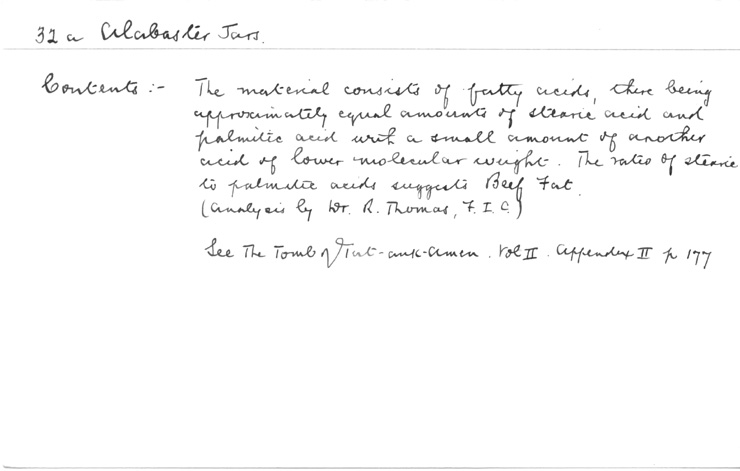 32 a Alabaster Jars.
Contents :- The material consists of fatty acids, there being
approximately equal amounts of stearic acid and
palmitic acid with a small amount of another
acid of lower molecular weight. The ratio of stearic
to palmitic acids suggests Beef Fat.
(Analysis by Mr. R. Thomas, F.I.C.)
See The Tomb of Tut-ankh-Amen. Vol II. Appendex II p 177